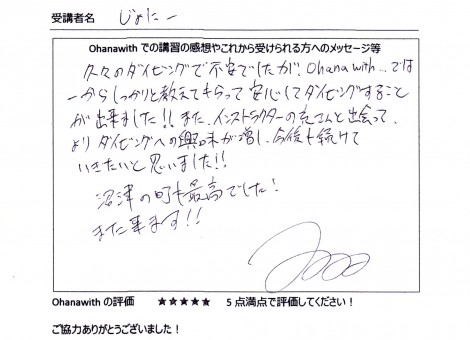 受講者名 じょにー
Ohanawith での講習の感想やこれから受けられる方へのメッセージ等
久々のダイビングで不安でしたが、Ohana with…では
一からしっかりと教えてもらって安心してダイビングすること
が出来ました!!また、インストラクターの克さんと出会って、
よりダイビングへの興味が増し、今後も続けて
いきたいと思いました!!
沼津の町も最高でした!
また来ます!!
Ohanawith の評価 ★★★★★ 5 点満点で評価してください!
ご協力ありがとうございました!